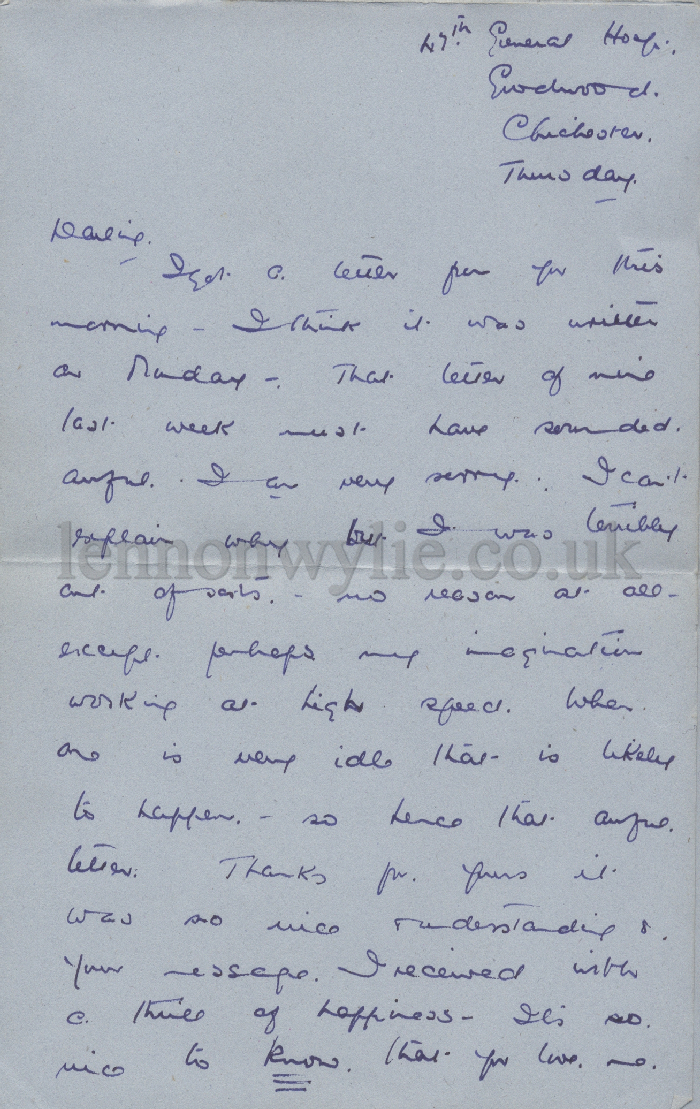 47th General Hosp.,
Goodwood.
Chichester.
Thursday.
Darling.
I got a letter from you this
morning - I think it was written
on Monday -. That letter of mine
last week must have sounded
awful. I am very sorry. I can't
explain why but I was terribly
lennonwylie.co.uk
out of sorts. - no reason at all -
except perhaps my imagination
working at high speed. When
one is very idle that is likely
to happen. - so hence that awful
letter. Thanks for yours it
was so nice & understanding &
your message. I received with
a thrill of happiness - It's so
nice to know that you love me.